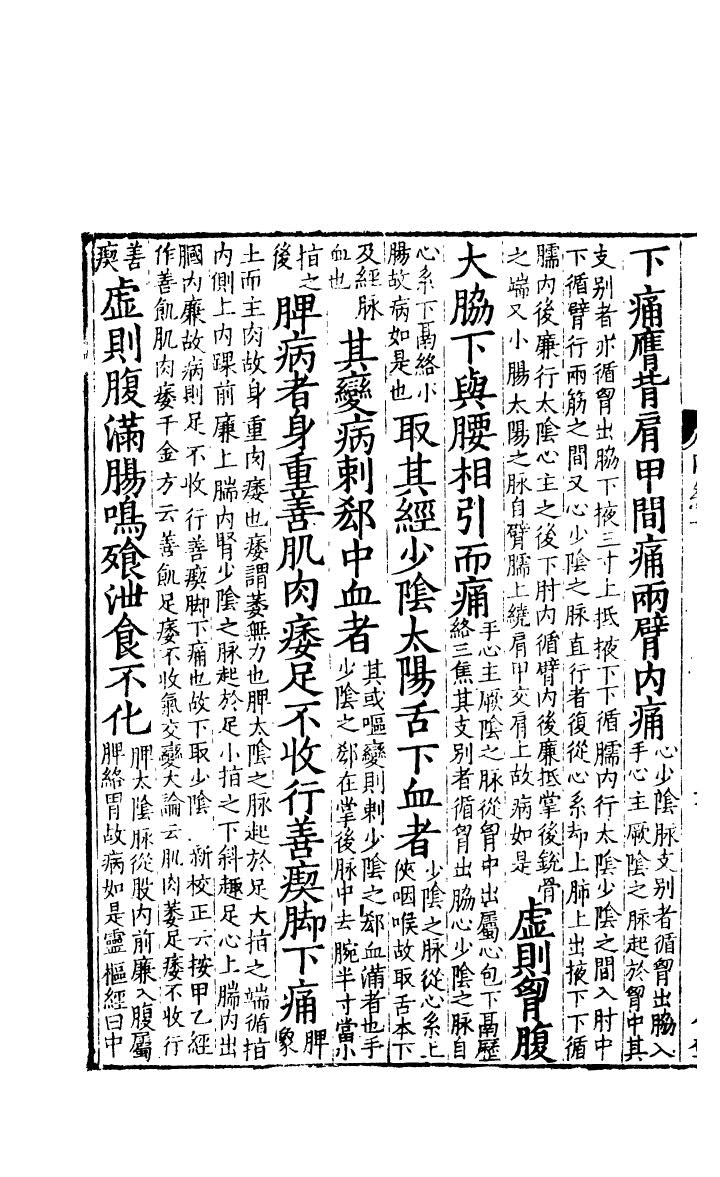 下痛膺背肩甲間痛兩臂内痛心少陰脉支别者循胷出脇入
手心主厥隂之脉起於胷中其
支别者亦循胷出脇下掖三寸上抵掖下下循臑内行太陰少陰之間入肘中
下循臂行兩筋之間又心少陰之脉直行者復從心系却上肺上出掖下下循
臑内後廉行太陰心主之後下肘内循臂内後廉抵掌後鋭骨
之端又小腸太陽之脉自臂臑上繞肩甲交肩上故病如是虛則胷腹
大脇下與腰相引而痛手心主厥陰之脉從胷中出屬心包下鬲歷
絡三焦其支别者循胷出脇心少陰之脉自
心系下鬲絡小
腸故病如是也取其經少陰太陽舌下血者少陰之脉從心系上
俠咽喉故取舌本下
及經脉
血也其變病刺郄中血者其或嘔變則刺少陰之郄血滿者也手
少陰之郄在掌後脉中去腕半寸當小
指之
後脾病者身重善肌肉痿足不收行善瘈脚下痛脾
象
土而主肉故身重肉痿也痿謂萎無力也脾太陰之脉起於足大指之端循指
内側上内踝前廉上腨内腎少陰之脉起於足小指之下斜趣足心上腨内出
膕内廉故病則足不收行善瘈脚下痛也故下取少陰新校正云按甲乙經
作善飢肌肉痿千金方云善飢足痿不收氣交變大論云肌肉萎足痿不收行
善
瘈虛則腹滿腸鳴飱泄食不化脾太陰脉從股内前廉入腹屬
脾絡胃故病如是靈樞經曰中